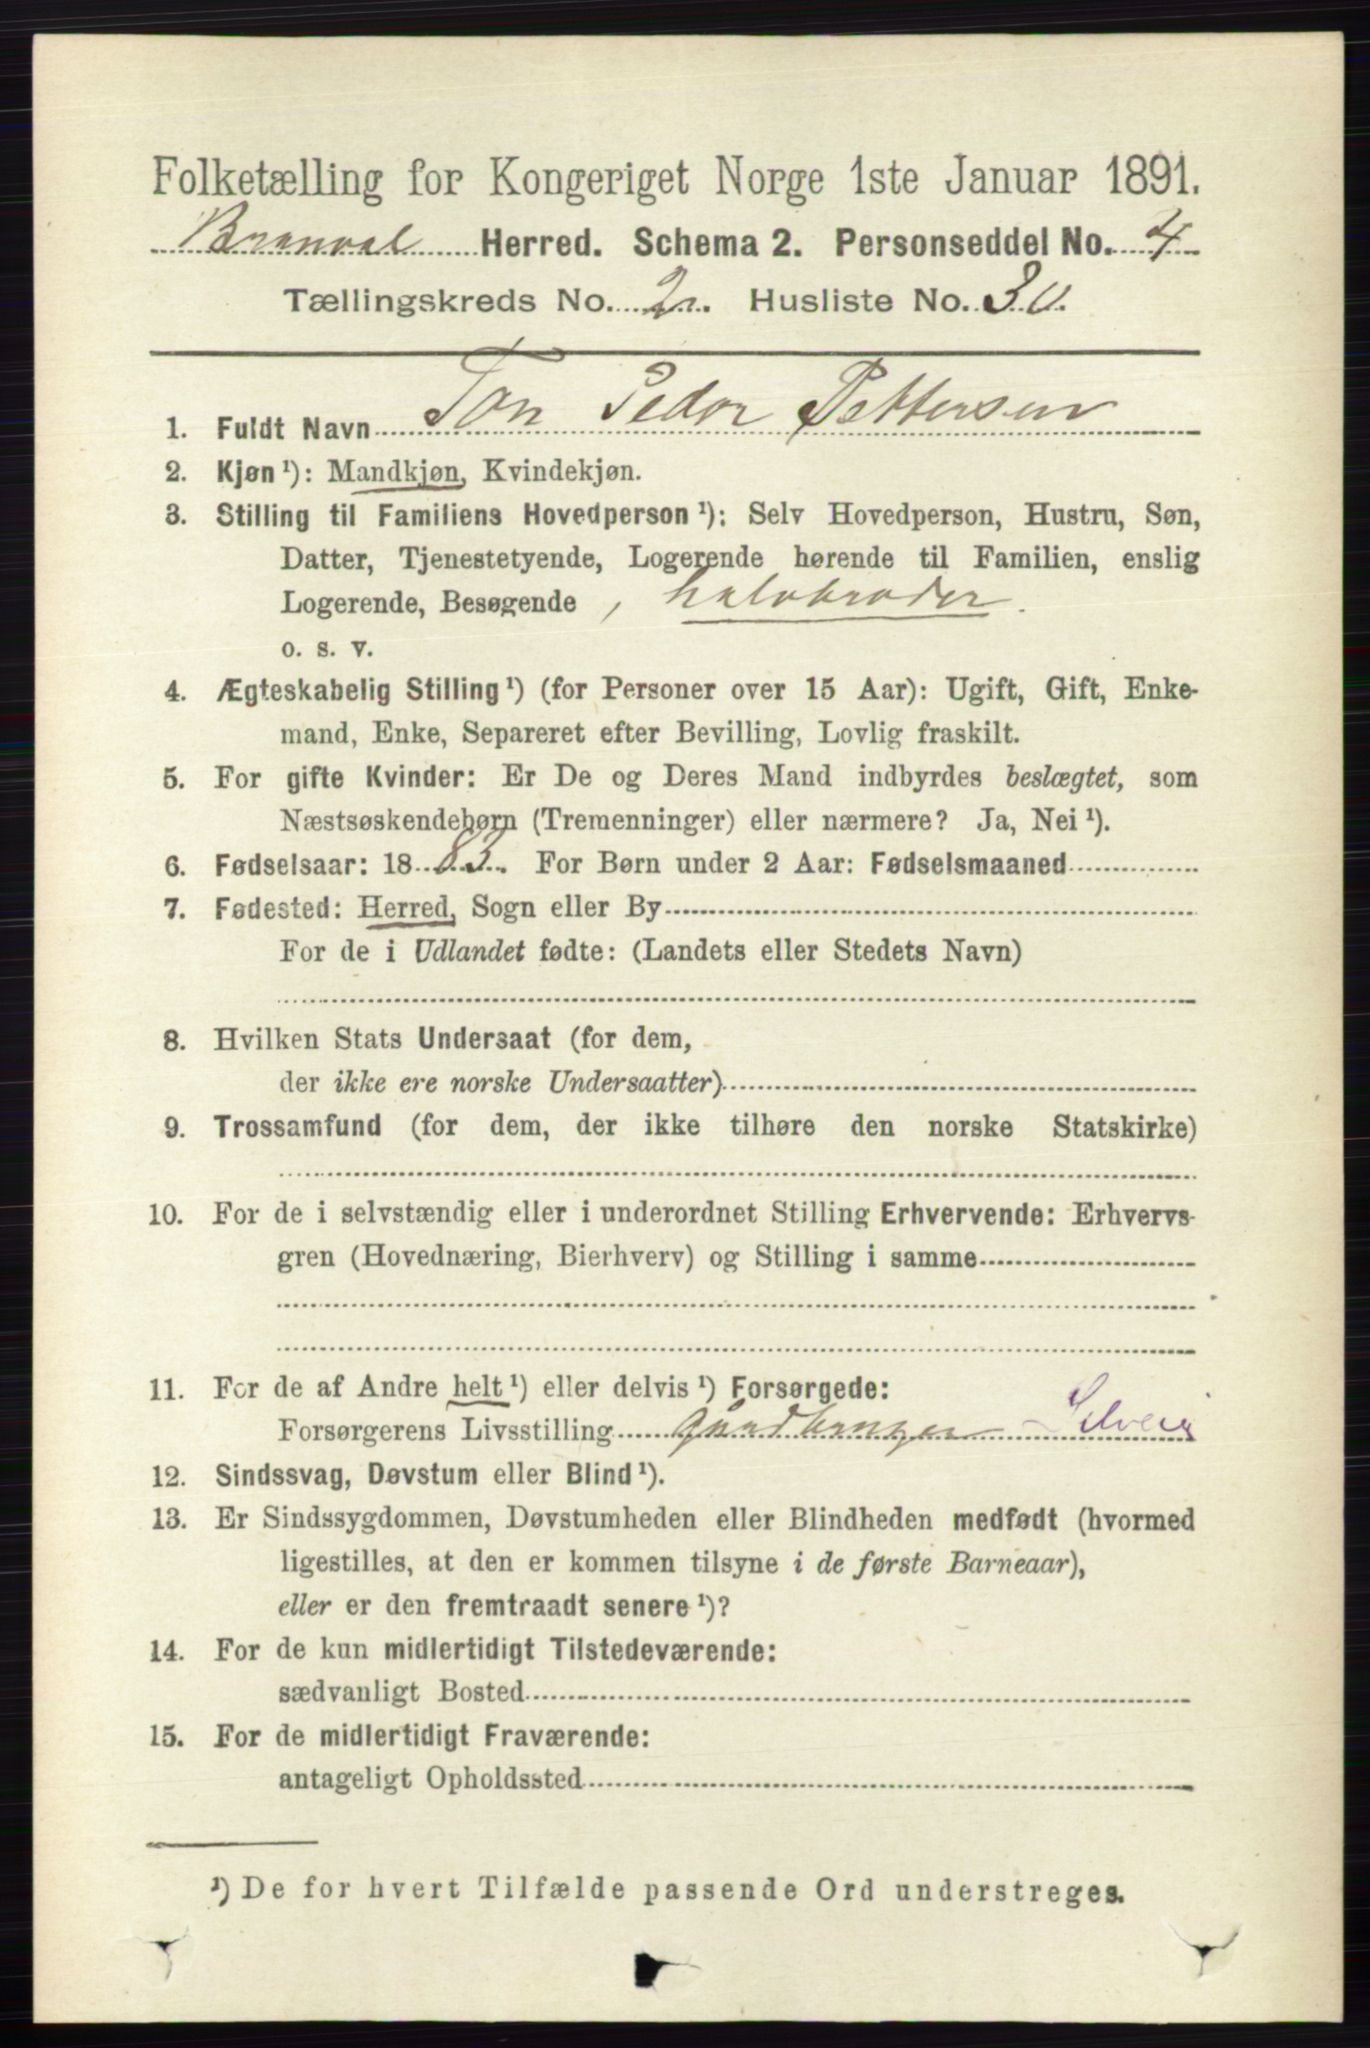 Folketælling for Kongeriget Norge 1ste Januar 1891.
Branval Herred. Schema 2. Personseddel No. 4
Tællingskreds No. 2. Husliste No. 30.
1. Fuldt Navn Jon Pedor Pettersen
2. Kjøn ¹): Mandkjøn, Kvindekjøn.
3. Stilling til Familiens Hovedperson ¹): Selv Hovedperson, Hustru, Søn,
Datter, Tjenestetyende, Logerende hørende til Familien, enslig
Logerende, Besøgende , halvbroder.
o. s. v.
4. Ægteskabelig Stilling ¹) (for Personer over 15 Aar): Ugift, Gift, Enke-
mand, Enke, Separeret efter Bevilling, Lovlig fraskilt.
5. For gifte Kvinder: Er De og Deres Mand indbyrdes beslægtet, som
Næstsøskendebørn (Tremenninger) eller nærmere? Ja, Nei ¹).
6. Fødselsaar: 1883. For Børn under 2 Aar: Fødselsmaaned
7. Fødested: Herred, Sogn eller By
For de i Udlandet fødte: (Landets eller Stedets Navn)
8. Hvilken Stats Undersaat (for dem,
der ikke ere norske Undersaatter)
9. Trossamfund (for dem, der ikke tilhøre den norske Statskirke)
10. For de i selvstændig eller i underordnet Stilling Erhvervende: Erhvervs-
gren (Hovednæring, Bierhverv) og Stilling i samme
11. For de af Andre helt ¹) eller delvis ¹) Forsørgede:
Forsørgerens Livsstilling Gaardbruger Selveier
12. Sindssvag, Døvstum eller Blind ¹).
13. Er Sindssygdommen, Døvstumheden eller Blindheden medfødt (hvormed
ligestilles, at den er kommen tilsyne i de første Barneaar),
eller er den fremtraadt senere ¹)?
14. For de kun midlertidigt Tilstedeværende:
sædvanligt Bosted
15. For de midlertidigt Fraværende:
antageligt Opholdssted
¹) De for hvert Tilfælde passende Ord understreges.